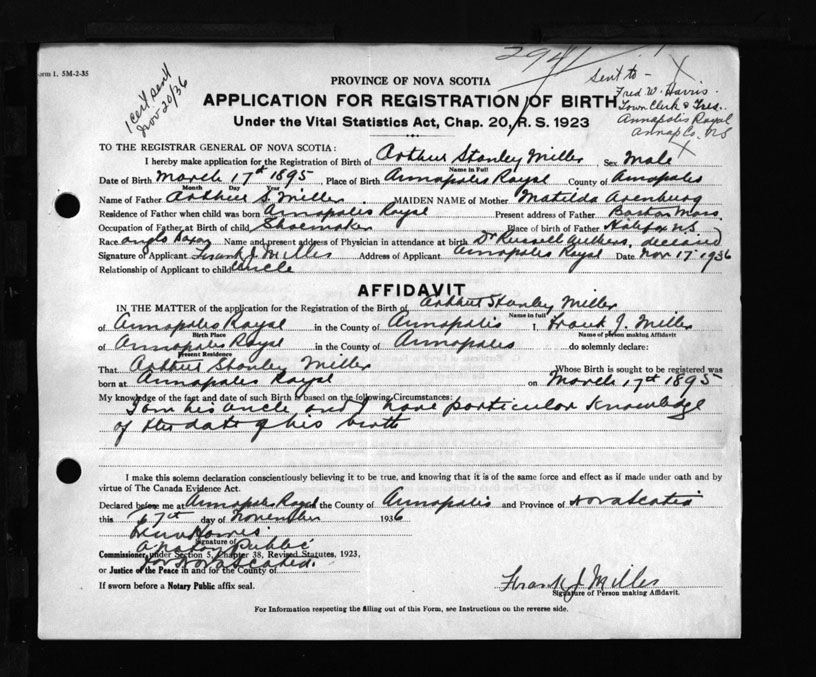 orm 1. 5M-2-35
1 cert sent
Nov 20/36
2941
Sent to -
Fred W. Harris.
Town Clerk & Tres.
Annapolis Royal
Annap Co. NS
PROVINCE OF NOVA SCOTIA
APPLICATION FOR REGISTRATION OF BIRTH
Under the Vital Statistics Act, Chap. 20, R. S. 1923
TO THE REGISTRAR GENERAL OF NOVA SCOTIA:
I hereby make application for the Registration of Birth of Arthur Stanley Miller Sex Male
Name in Full
Date of Birth March 17th 1895 Place of Birth Annapolis Royal County of Annapolis
Month Day Year
Name of Father Arthur S. Miller MAIDEN NAME of Mother Matilda
Residence of Father when child was born Annapolis Royal Present address of Father Boston Mass.
Occupation of Father at Birth of child Shoemaker Place of birth of Father Halifax N.S.
Race Anglo Saxon Name and present address of Physician in attendance at birth Dr Russell deceased
Signature of Applicant Frank J. Miller Address of Applicant Annapolis Royal Date Nov 17 1936
Relationship of Applicant to child Uncle
AFFIDAVIT
IN THE MATTER of the application for the Registration of the Birth of Arthur Stanley Miller
Name in full
of Annapolis Royal in the County of Annapolis I, Frank J. Miller
Birth Place Name of person making Affidavit
of Annapolis Royal in the County of Annapolis do solemnly declare:
Present Residence
That Arthur Stanley Miller Whose Birth is sought to be registered was
born at Annapolis Royal on March 17th 1895
My knowledge of the fact and date of such Birth is based on the following Circumstances:
I am his uncle and I have particular knowledge
of the date of his birth
I make this solemn declaration conscientiously believing it to be true, and knowing that it is of the same force and effect as if made under oath and by
virtue of The Canada Evidence Act.
Declared before me at Annapolis Royal in the County of Annapolis and Province of Nova Scotia
this 17th day of November 1936
Harris
Signature of
A Notary Public
Commissioner under Section 5, Chapter 38, Revised Statutes, 1923,
for Nova Scotia
or Justice of the Peace in and for the County of
If sworn before a Notary Public affix seal.
Frank J. Miller
Signature of Person making Affidavit.
For Information respecting the filling out of this Form, see Instructions on the reverse side.